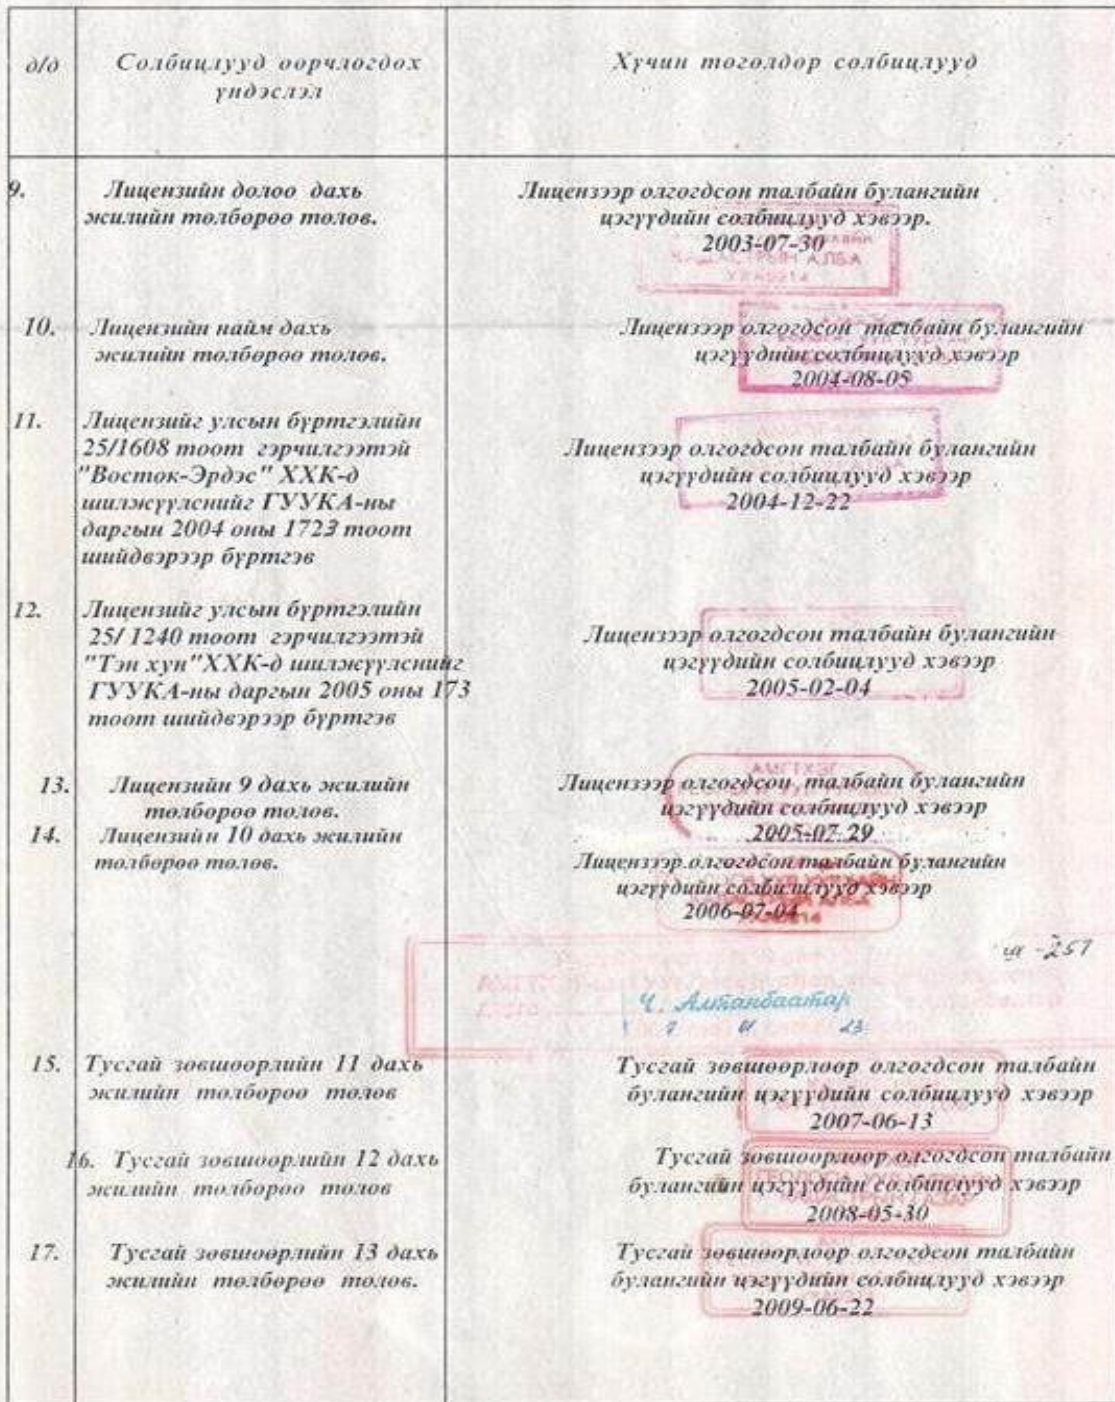 д/д
Солбицлууд өөрчлөгдөх
үндэслэл
Хүчин төгөлдөр солбицлууд
9.
Лицензийн долоо дахь
жилийн төлбөрөө төлөв.
Лицензээр олгогдсон талбайн булангийн
цэгүүдийн солбицлууд хэвээр.
2003-07-30
10.
Лицензийн найм дахь
жилийн төлбөрөө төлөв.
Лицензээр олгогдсон талбайн булангийн
цэгүүдийн солбицлууд хэвээр
2004-08-05
11.
Лицензийг улсын бүртгэлийн
25/1608 тоот гэрчилгээтэй
"Восток-Эрдэс" ХХК-д
шилжүүлснийг ГУУКА-ны
даргын 2004 оны 1723 тоот
шийдвэрээр бүртгэв
Лицензээр олгогдсон талбайн булангийн
цэгүүдийн солбицлууд хэвээр
2004-12-22
12.
Лицензийг улсын бүртгэлийн
25/ 1240 тоот гэрчилгээтэй
"Тэн хун"ХХК-д шилжүүлснийг
ГУУКА-ны даргын 2005 оны 173
тоот шийдвэрээр бүртгэв
Лицензээр олгогдсон талбайн булангийн
цэгүүдийн солбицлууд хэвээр
2005-02-04
13.
Лицензийн 9 дахь жилийн
төлбөрөө төлөв.
Лицензээр олгогдсон талбайн булангийн
цэгүүдийн солбицлууд хэвээр
2005-07-29
14.
Лицензийн 10 дахь жилийн
төлбөрөө төлөв.
Лицензээр олгогдсон талбайн булангийн
цэгүүдийн солбицлууд хэвээр
2006-07-04
-257
Ч. Алтанбаатар
15.
Тусгай зөвшөөрлийн 11 дахь
жилийн төлбөрөө төлөв
Тусгай зөвшөөрлөөр олгогдсон талбайн
булангийн цэгүүдийн солбицлууд хэвээр
2007-06-13
16.
Тусгай зөвшөөрлийн 12 дахь
жилийн төлбөрөө төлөв
Тусгай зөвшөөрлөөр олгогдсон талбайн
булангийн цэгүүдийн солбицлууд хэвээр
2008-05-30
17.
Тусгай зөвшөөрлийн 13 дахь
жилийн төлбөрөө төлөв.
Тусгай зөвшөөрлөөр олгогдсон талбайн
булангийн цэгүүдийн солбицлууд хэвээр
2009-06-22